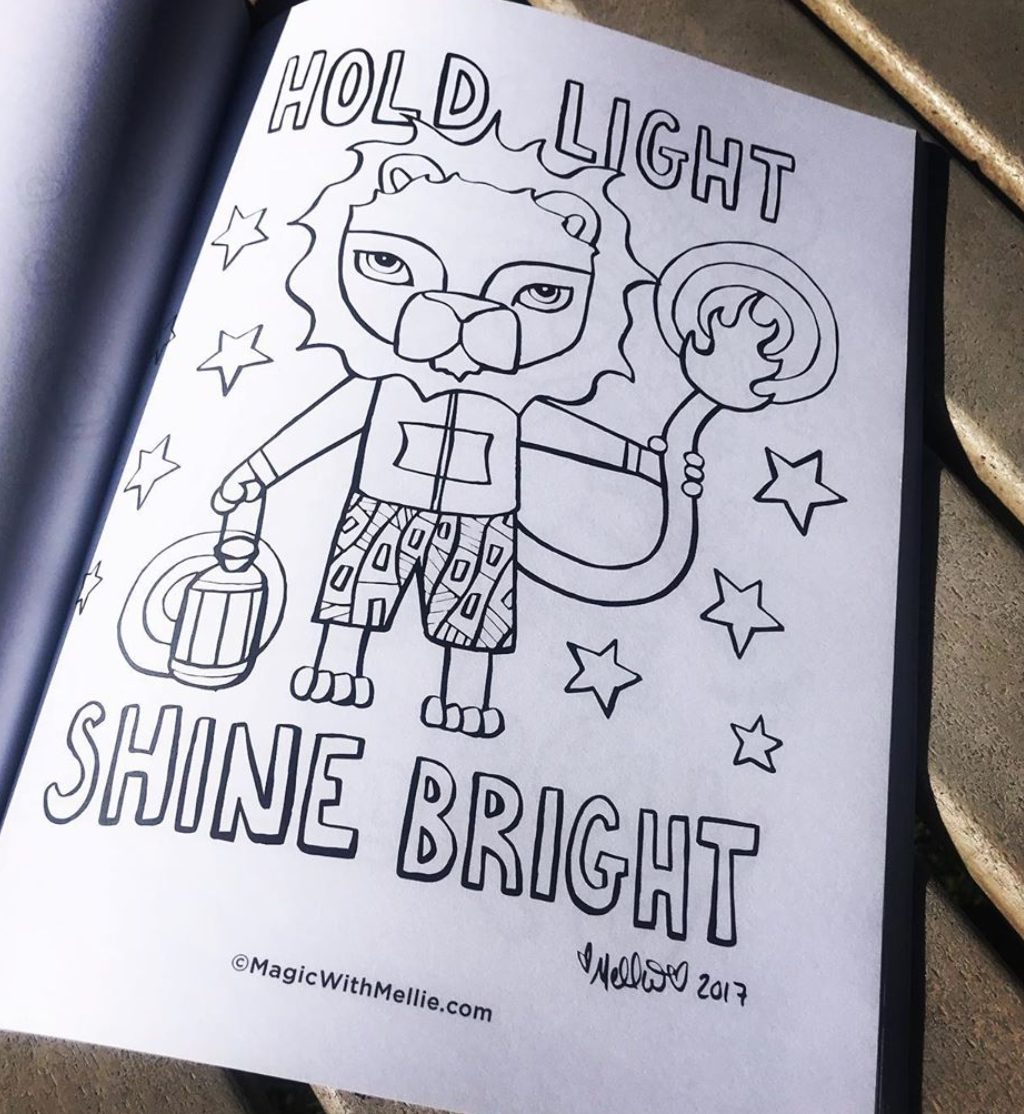 HOLD LIGHT
SHINE BRIGHT
©MagicWithMellie.com
♡MellieW♡ 2017